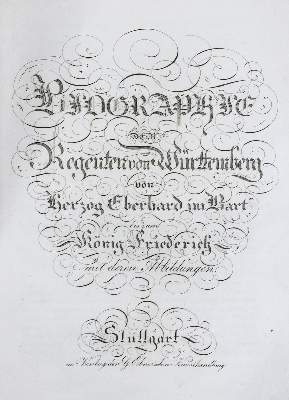 BIOGRAPHIE
der
Regenten von Württemberg
von
Herzog Eberhard im Bart
bis zum
König Friederich
mit deren Abbildungen.
Stuttgart
im Verlag der G. Ebnerschen Kunsthandlung